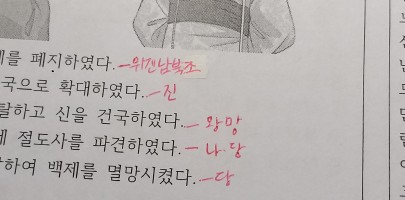 를 폐지하였다. - 위진남북조
국으로 확대하였다. - 진
탈하고 신을 건국하였다. - 왕망
절도사를 파견하였다. - 나·당
하여 백제를 멸망시켰다. - 당